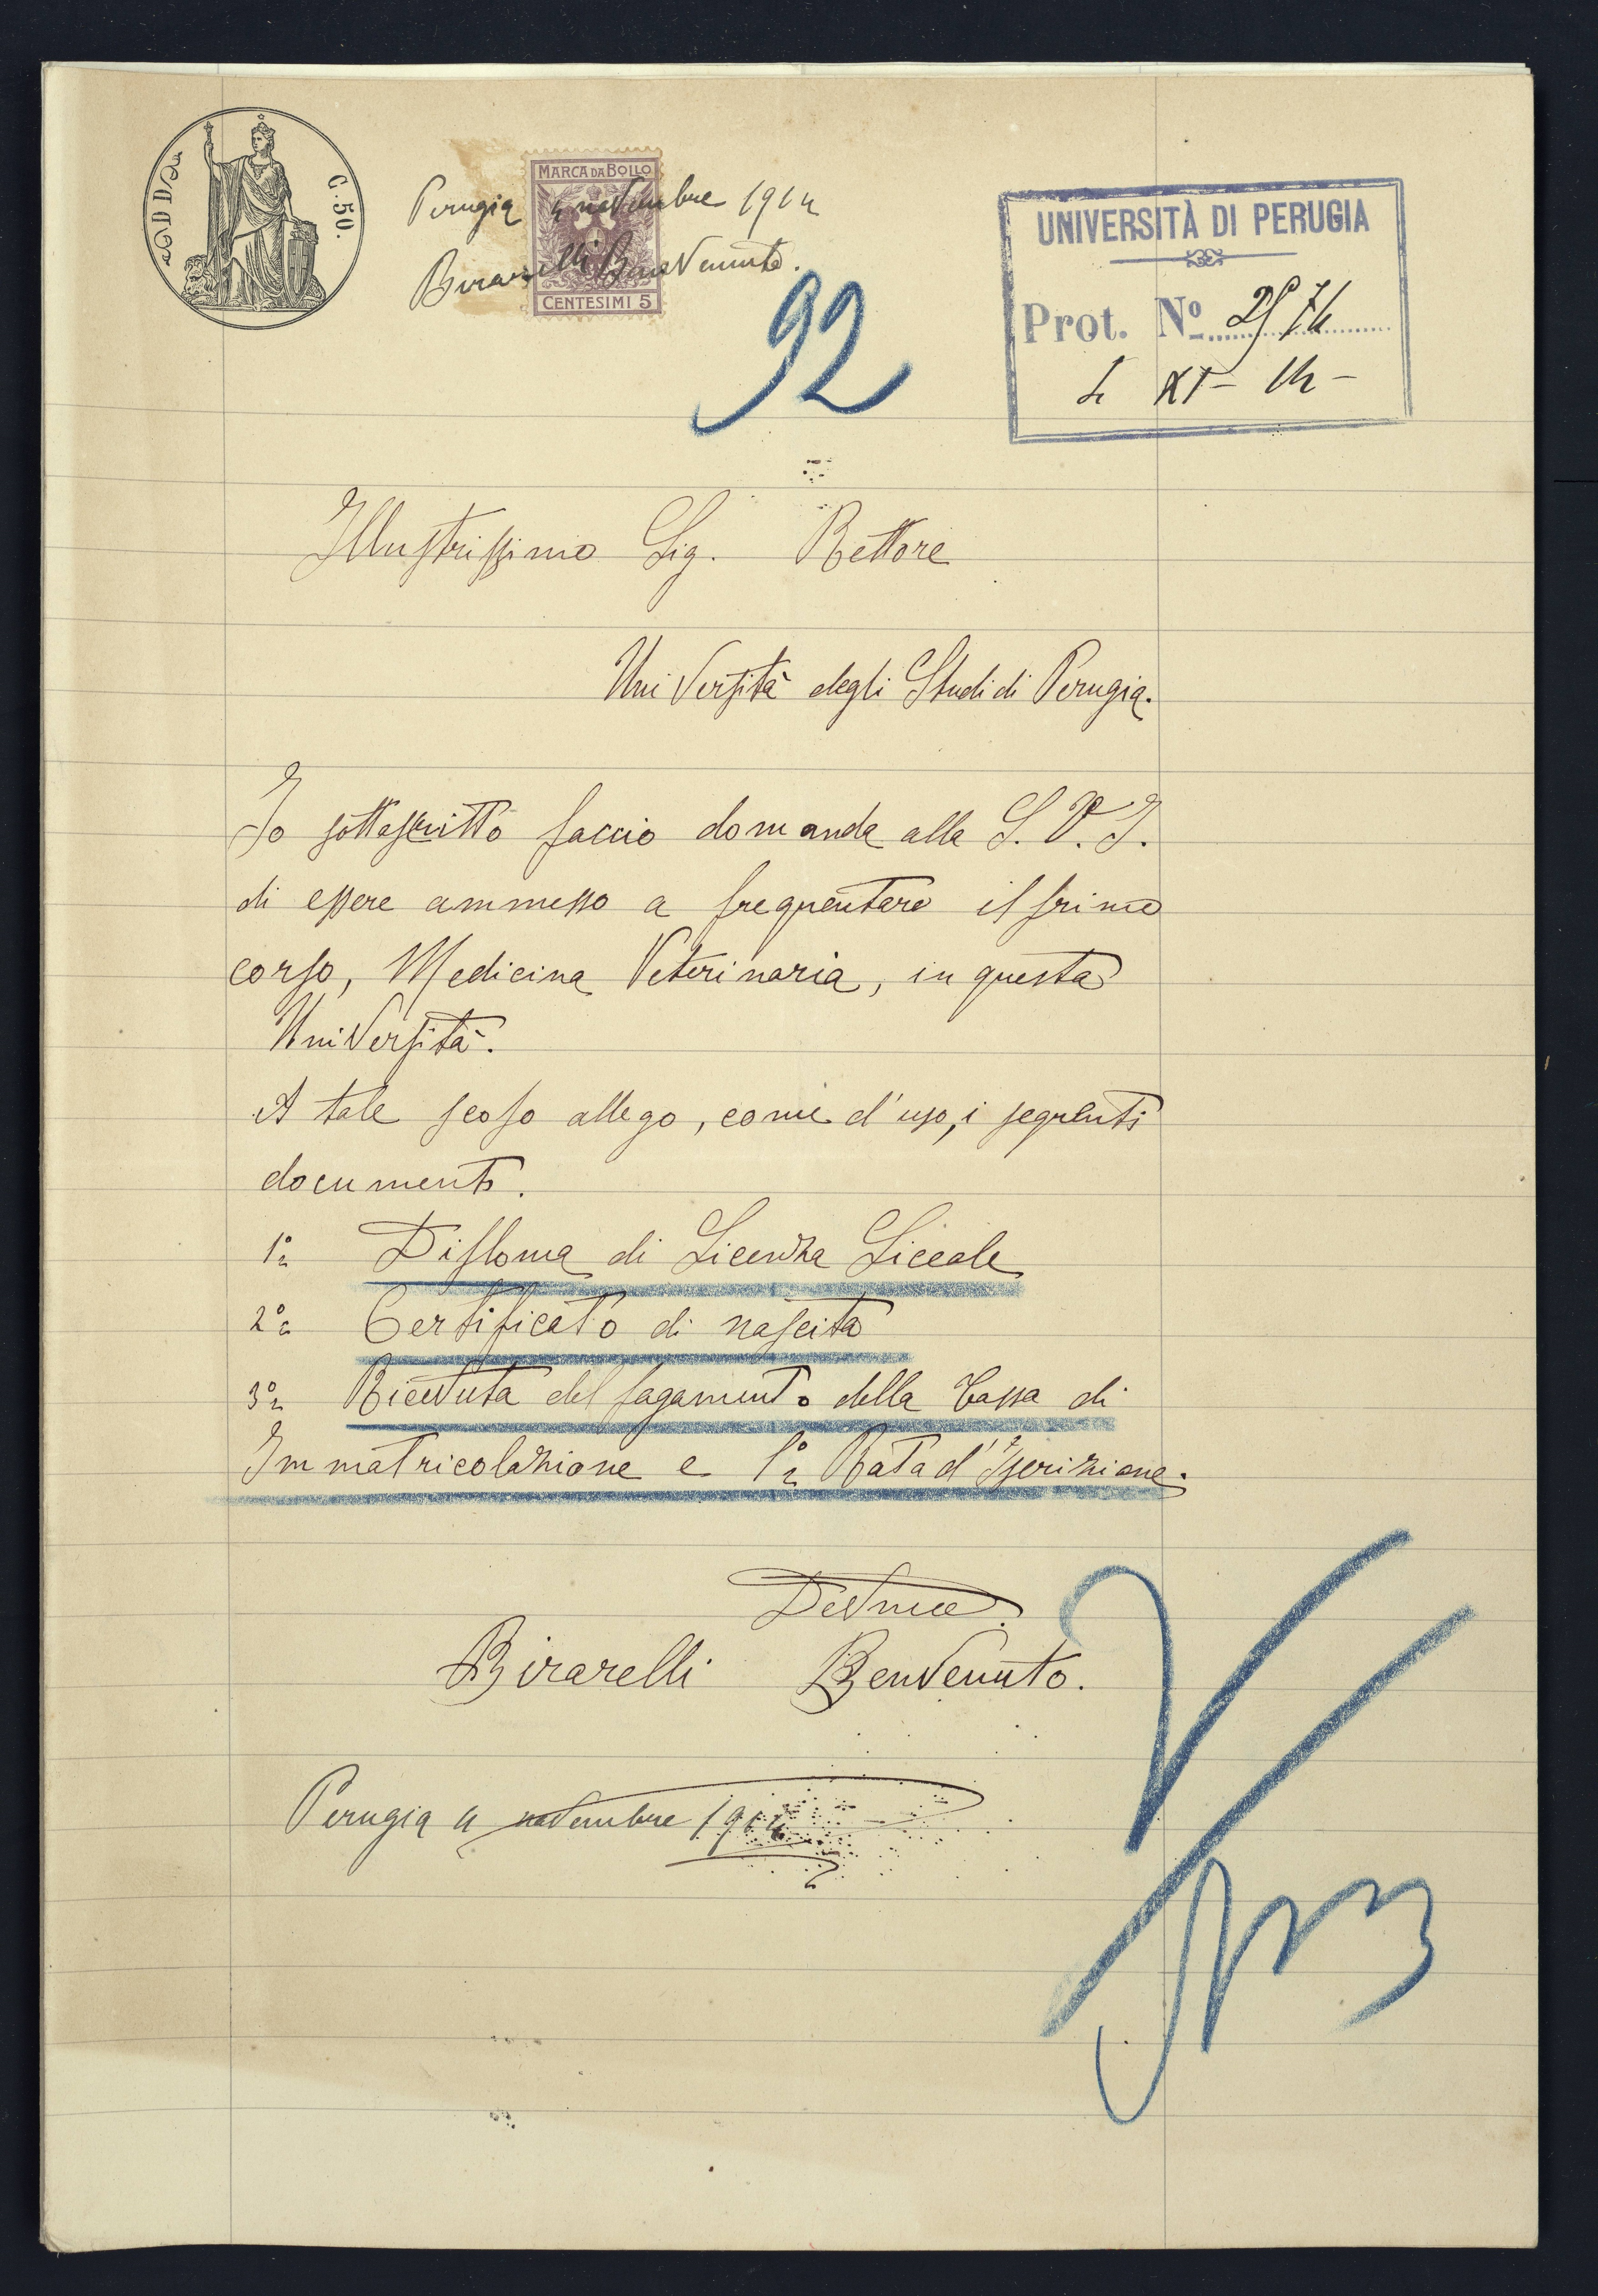 C. 50.
MARCA DA BOLLO
Perugia 4 novembre 1914
Birarelli Benvenuto.
CENTESIMI 5
92
UNIVERSITÀ DI PERUGIA
Prot. Nº
4 XI - 14 -
Illustrissimo Sig. Rettore
Università degli Studi di Perugia.
Io sottoscritto faccio domanda alla S. V. I.
di essere ammesso a frequentare il primo
corso, Medicina Veterinaria, in questa
Università.
A tale scopo allego, come d'uso, i seguenti
documenti.
1º Diploma di Licenza Liceale
2º Certificato di nascita
3º Ricevuta del pagamento della Tassa di
Immatricolazione e 1ª Rata d'Iscrizione.
Devmo
Birarelli Benvenuto.
Perugia 4 novembre 1914
V